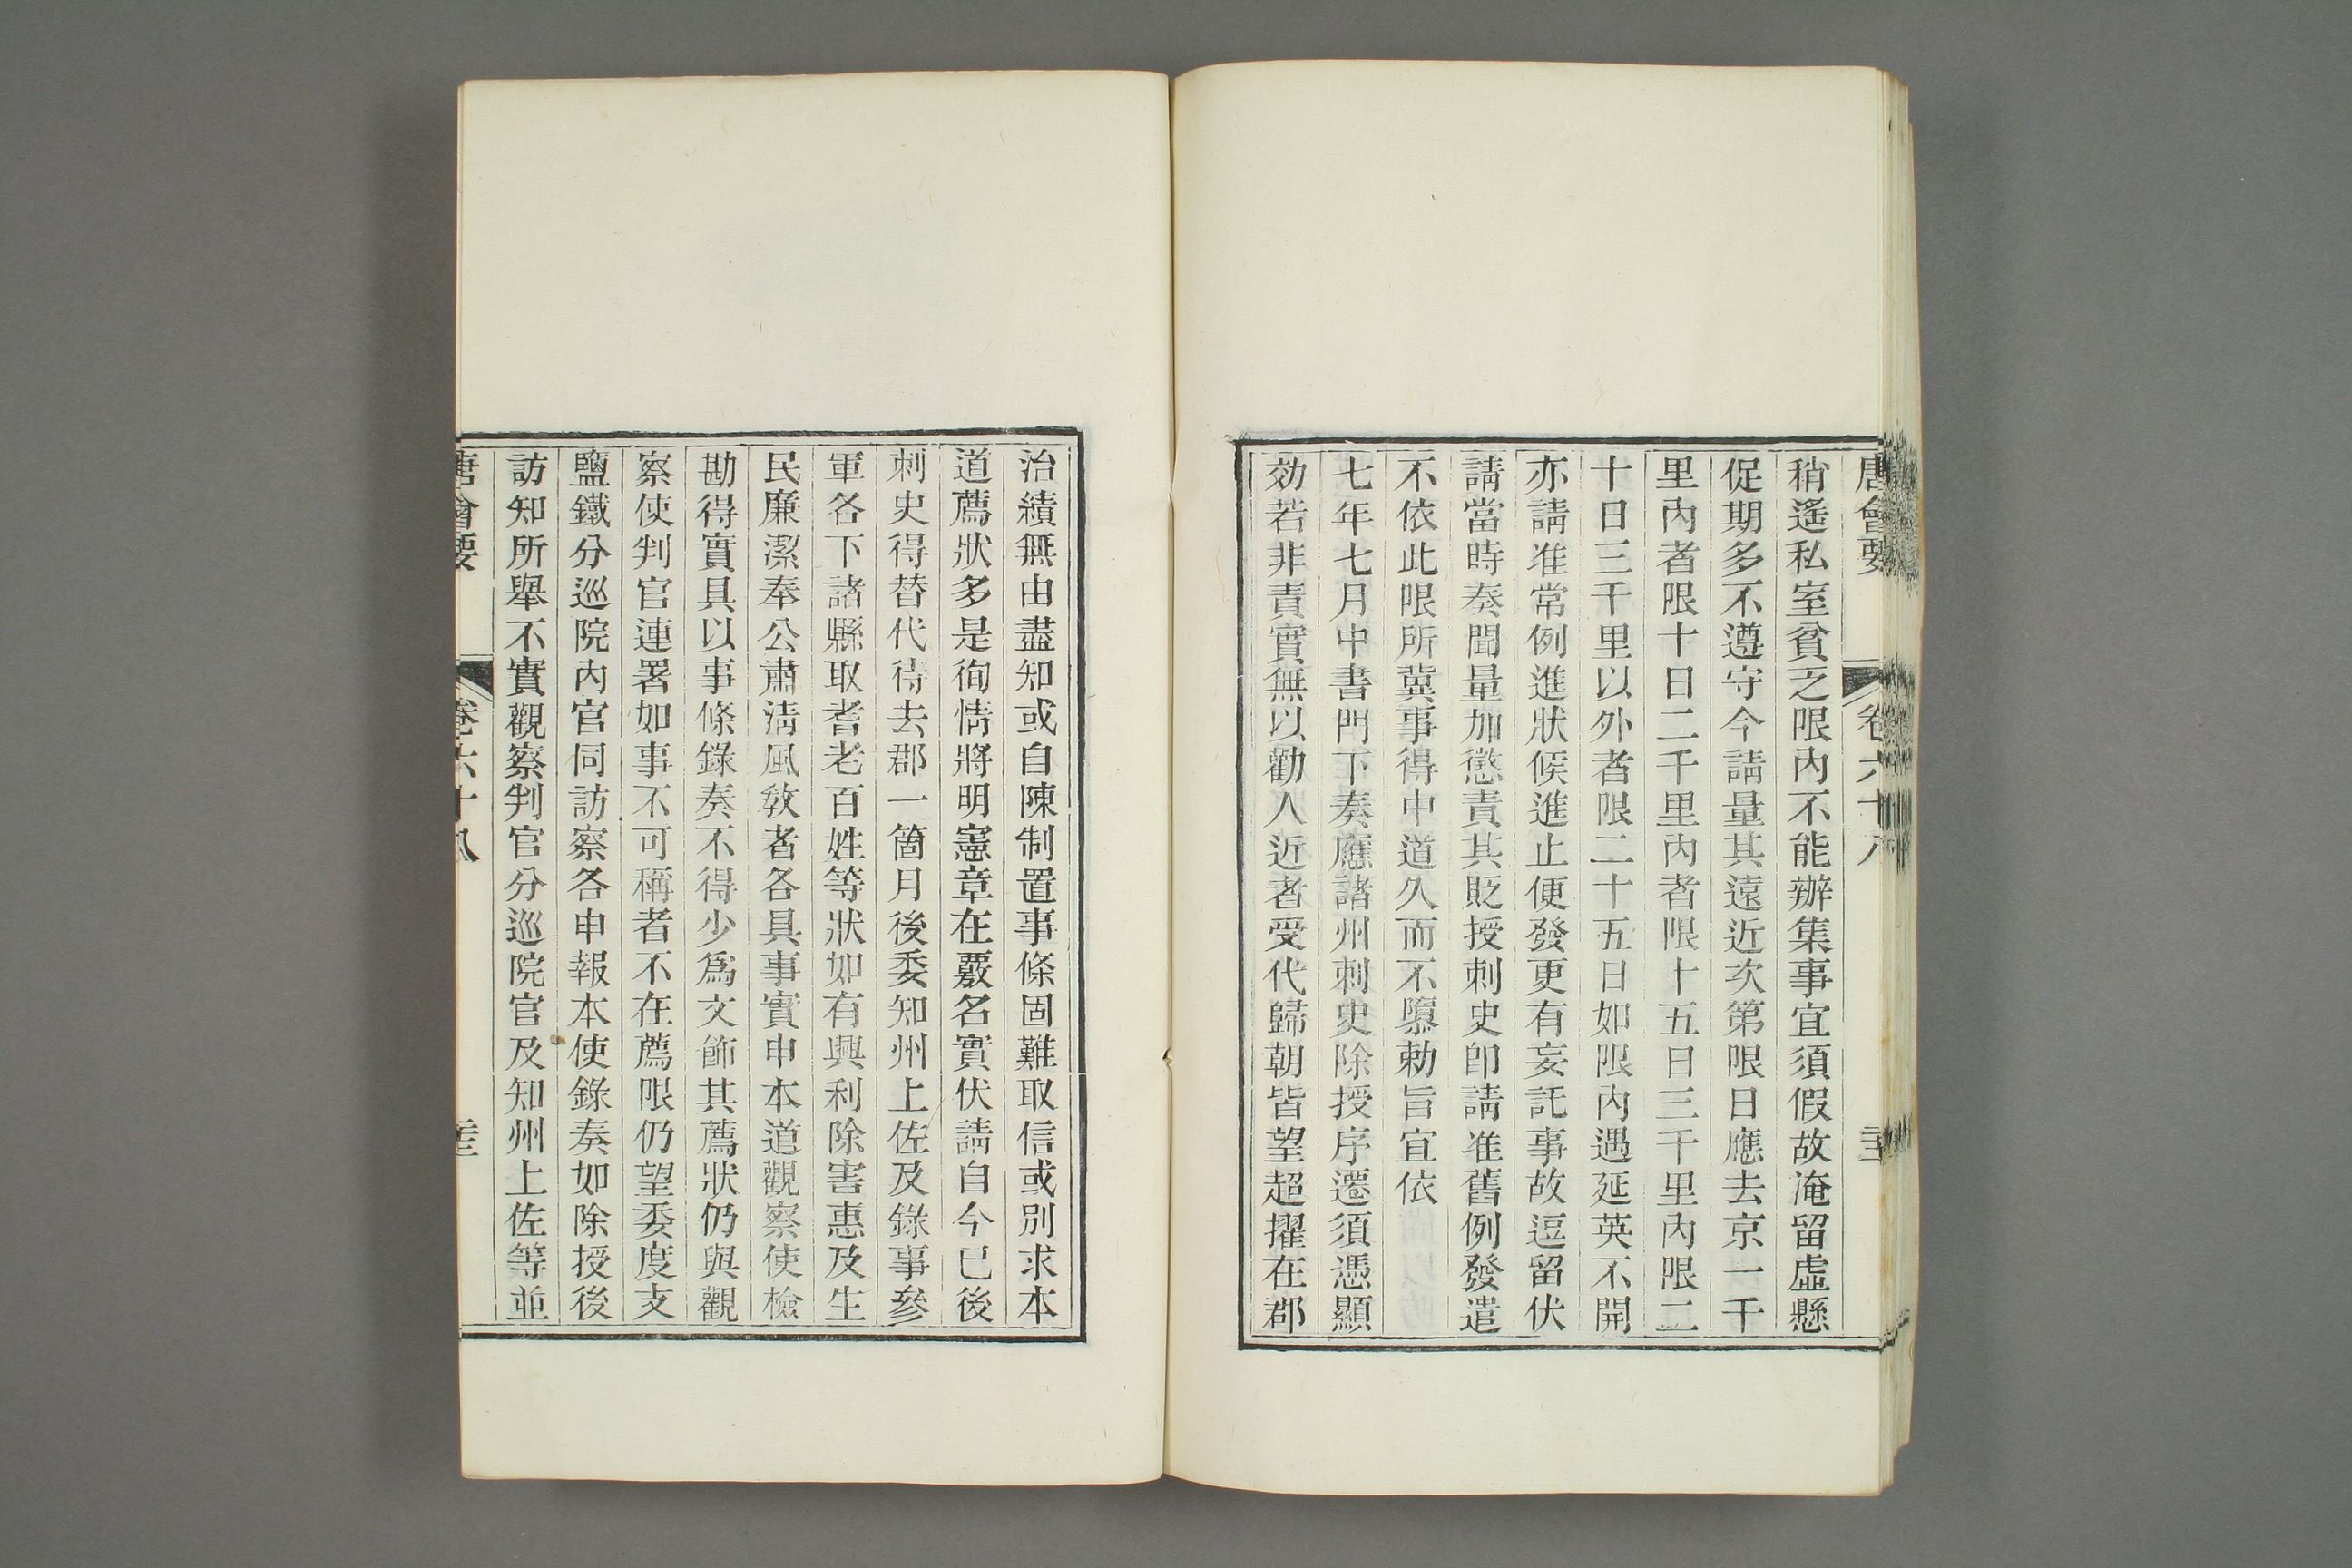 唐會要 卷六十八
稍遙私室貧乏限內不能辦集事宜須假故淹留虛懸
促期多不遵守今請量其遠近次第限日應去京一千
里內者限十日二千里內者限十五日三千里內限二
十日三千里以外者限二十五日如限內遇延英不開
亦請准常例進狀候進止便發更有妄託事故逗留伏
請當時奏聞量加懲責其貶授刺史卽請准舊例發遣
不依此限所冀事得中道久而不隳勅旨宜依
七年七月中書門下奏應諸州刺史除授序遷須憑顯
効若非責實無以勸人近者受代歸朝皆望超擢在郡
治績無由盡知或自陳制置事條固難取信或別求本
道薦狀多是徇情將明憲章在覈名實伏請自今已後
刺史得替代待去郡一箇月後委知州上佐及錄事參
軍各下諸縣取耆老百姓等狀如有興利除害惠及生
民廉潔奉公肅淸風敎者各具事實申本道觀察使檢
勘得實具以事條錄奏不得少爲文飾其薦狀仍與觀
察使判官連署如事不可稱者不在薦限仍望委度支
鹽鐵分巡院內官同訪察各申報本使錄奏如除授後
訪知所舉不實觀察判官分巡院官及知州上佐等並
唐會要 卷六十八